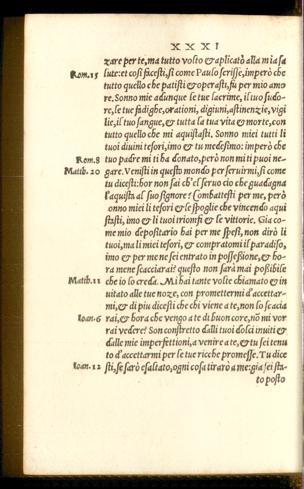 XXXI
zare per te, ma tutto volto & aplicato alla mia sa
Rom. 15 lute: et così facesti, si come Paulo scrisse, imperò che
tutto quello che patisti & operasti, fu per mio amo
re. Sonno mie adunque le tue lacrime, il tuo sudo-
re, le tue fadighe, orationi, digiuni, astinenzie, vigi
lie, il tuo sangue, & tutta la tua vita & morte, con
tutto quello che mi aquistasti. Sonno miei tutti li
tuoi diuini tesori, imo & tu medesimo: imperò che
Rom. 8 tuo padre mi ti ha donato, però non mi ti puoi ne-
Matth. 20 gare. Venisti in questo mondo per seruirmi, si come
tu dicesti: hor non sai ch'el seruo ciò che guadagna
l'aquista al suo signore? Combattesti per me, però
sonno miei li tesori & le spoglie che vincendo aqui
stasti, imo & li tuoi trionfi & le vittorie. Gia co-
me mio depositario hai per me spesi, non dirò li
tuoi, ma li miei tesori, & compratomi il paradiso,
imo & per me ne sei entrato in possessione, & ho-
ra mene scacciarai? questo non sarà mai possibile
Matth. 11 che io lo creda. Mi hai tante volte chiamato & in
uitato alle tue noze, con promettermi d'accettar-
mi, & di piu dicesti che chi viene a te, non lo scacia
Ioan. 6 rai, & hora che vengo a te di buon core, nō mi vor
rai vedere? Son constretto dalli tuoi dolci inuiti &
dalle mie imperfettioni, a venire a te, & tu sei tenu
to d'accettarmi per le tue ricche promesse. Tu dice
Ioan. 12 sti, se sarò esaltato, ogni cosa tirarò a me: gia sei sta
to posto